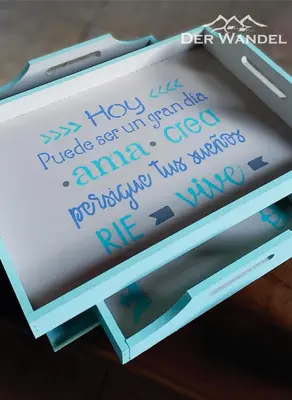 DER WANDEL
Hoy
Puede ser un gran día
ama crea
persigue tus sueños
RIE vive